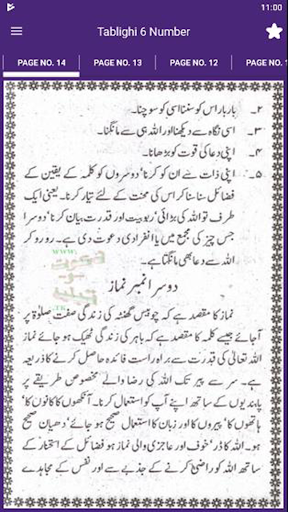 11:00
Tablighi 6 Number
PAGE NO. 14 PAGE NO. 13 PAGE NO. 12 PAGE NO.
۲۔ بار بار اس کو سننا اسی کو سوچنا۔
۳۔ اسی نگاہ سے دیکھنا اور اللہ ہی سے مانگنا۔
۴۔ اپنی دعا کی قوت کو بڑھانا۔
۵۔ اپنی ذات سے ان کو کرنا' دوسروں کو کلمہ کے یقین کے
فضائل سنا سنا کر اس کی محنت کے لئے تیار کرنا۔ یعنی ایک
طرف تو اللہ کی بڑائی' ربوبیت اور قدرت بیان کرنا' دوسرا
جس چیز کی مجمع میں یا انفرادی دعوت دی ہے۔ رو رو کر
اللہ سے دعا بھی مانگنا ہے۔
www.
دوسرا نمبر نماز
نماز کا مقصد ہے کہ چوبیس گھنٹہ کی زندگی صفت صلوٰۃ پر
آجائے جیسے کلمہ کا مقصد ہے کہ باہر کی زندگی ٹھیک ہو جائے نماز
اللہ تعالٰی کی قدرت سے براہ راست فائدہ حاصل کرنے کا ذریعہ
ہے۔ سر سے پیر تک اللہ کی رضا والے مخصوص طریقے پر
پابندیوں کے ساتھ اپنے آپ کو استعمال کرنا۔ آنکھوں کا' کانوں کا'
ہاتھوں کا' پیروں کا اور زبان کا استعمال صحیح ہو۔ دھیان صحیح
ہو۔ اللہ کا ڈر' خوف اور عاجزی والی نماز ہو فضائل کے استحضار کے
ساتھ اللہ کو راضی کرنے کے جذبے سے اور نفس کے مجاہدے